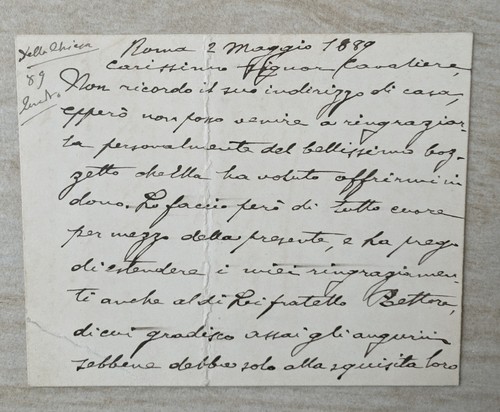 Della Chiesa
89
Roma 2 Maggio 1889
Carissimo Signor Cavaliere,
Non ricordo il suo indirizzo di casa,
epperò non posso venire a ringraziar-
la personalmente del bellissimo boz-
zetto ch'Ella ha voluto offrirmi in
dono. Lo faccio però di tutto cuore
per mezzo della presente, e La prego
di estendere i miei ringraziamen-
ti anche al di Lei fratello Rettore,
di cui gradisco assai gli augurii
sebbene debba solo alla squisita loro